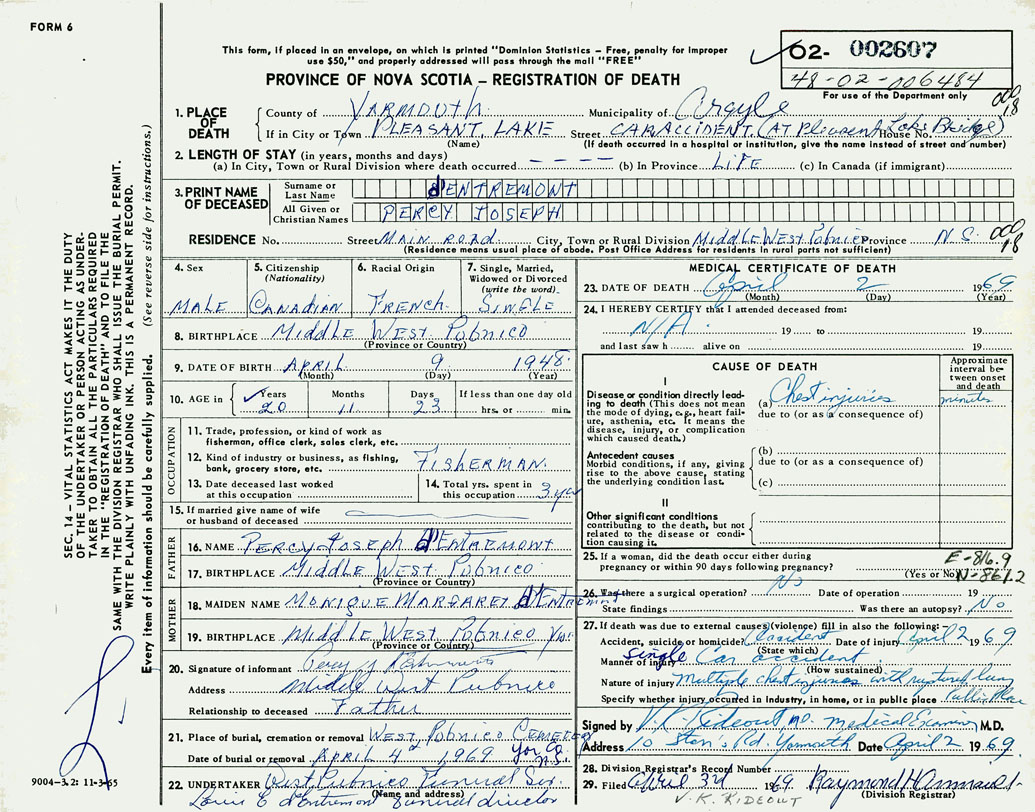 FORM 6
This form, if placed in an envelope, on which is printed "Dominion Statistics – Free, penalty for improper
use $50," and properly addressed will pass through the mail "FREE"
PROVINCE OF NOVA SCOTIA – REGISTRATION OF DEATH
02- 002607
48-02-006484
For use of the Department only
000
18
1. PLACE OF DEATH
County of YARMOUTH. Municipality of Argyle
If in City or Town PLEASANT, LAKE Street CAR ACCIDENT. (AT Pleasant Lake Bridge) House No.
(Name) (If death occurred in a hospital or institution, give the name instead of street and number)
2. LENGTH OF STAY (in years, months and days)
(a) In City, Town or Rural Division where death occurred - - - - (b) In Province LIFE (c) In Canada (if immigrant)
3. PRINT NAME OF DECEASED
Surname or Last Name d'ENTREMONT
All Given or Christian Names PERCY JOSEPH
RESIDENCE No. Street MAIN ROAD City, Town or Rural Division MIDDLE WEST PUBNICO Province N.S.
(Residence means usual place of abode. Post Office Address for residents in rural parts not sufficient)
000
18
4. Sex MALE
5. Citizenship (Nationality) CANADIAN
6. Racial Origin FRENCH.
7. Single, Married, Widowed or Divorced (write the word) SINGLE
8. BIRTHPLACE MIDDLE WEST PUBNICO
(Province or Country)
9. DATE OF BIRTH APRIL 9 1948.
(Month) (Day) (Year)
10. AGE in Years 20 Months 11 Days 23 If less than one day old hrs. or min.
OCCUPATION
11. Trade, profession, or kind of work as
fisherman, office clerk, sales clerk, etc.
12. Kind of industry or business, as fishing,
bank, grocery store, etc. FISHERMAN.
13. Date deceased last worked
at this occupation
14. Total yrs. spent in
this occupation 3 yrs
15. If married give name of wife
or husband of deceased
FATHER
16. NAME PERCY JOSEPH d'ENTREMONT
17. BIRTHPLACE MIDDLE WEST PUBNICO
(Province or Country)
MOTHER
18. MAIDEN NAME MONIQUE MARGARET d'Entremont
19. BIRTHPLACE MIDDLE WEST PUBNICO
(Province or Country)
20. Signature of informant
Address Middle West Pubnico
Relationship to deceased Father
21. Place of burial, cremation or removal WEST PUBNICO CEMETERY
Date of burial or removal APRIL 4th, 1969 Yar. Co. N.S.
22. UNDERTAKER West Pubnico Funeral Ser.
(Name and address)
Louis E d'Entremont funeral director
MEDICAL CERTIFICATE OF DEATH
23. DATE OF DEATH April 2 1969
(Month) (Day) (Year)
24. I HEREBY CERTIFY that I attended deceased from:
N/A. 19 to 19
and last saw h alive on 19
CAUSE OF DEATH
Approximate interval between onset and death
I
Disease or condition directly leading to death (This does not mean the mode of dying, e.g., heart failure, asthenia, etc. It means the disease, injury, or complication which caused death.)
(a) Chest injuries minutes
due to (or as a consequence of)
Antecedent causes
Morbid conditions, if any, giving rise to the above cause, stating the underlying condition last.
(b)
due to (or as a consequence of)
(c)
II
Other significant conditions
contributing to the death, but not related to the disease or condition causing it.
25. If a woman, did the death occur either during
pregnancy or within 90 days following pregnancy?
(Yes or No)
E-816.9
N-861.2
26. Was there a surgical operation? No Date of operation 19
State findings Was there an autopsy? No
27. If death was due to external causes (violence) fill in also the following:
Accident, suicide or homicide? Accident Date of injury April 2 1969
(State which)
Manner of injury Single Car accident
(How sustained)
Nature of injury Multiple chest injuries with ruptured lung
Specify whether injury occurred in industry, in home, or in public place Public Place
Signed by V. K. Rideout MD. Medical Examiner M.D.
Address 10 Yarmouth Date April 2 1969.
28. Division Registrar's Record Number
29. Filed April 3rd 1969
(Division Registrar)
V. K. RIDEOUT
SEC. 14 – VITAL STATISTICS ACT MAKES IT THE DUTY
OF THE UNDERTAKER OR PERSON ACTING AS UNDER-
TAKER TO OBTAIN ALL THE PARTICULARS REQUIRED
IN THE "REGISTRATION OF DEATH" AND TO FILE THE
SAME WITH THE DIVISION REGISTRAR WHO SHALL ISSUE THE BURIAL PERMIT.
WRITE PLAINLY WITH UNFADING INK. THIS IS A PERMANENT RECORD.
Every item of information should be carefully supplied. (See reverse side for instructions.)
9004-3.2: 11-3-65